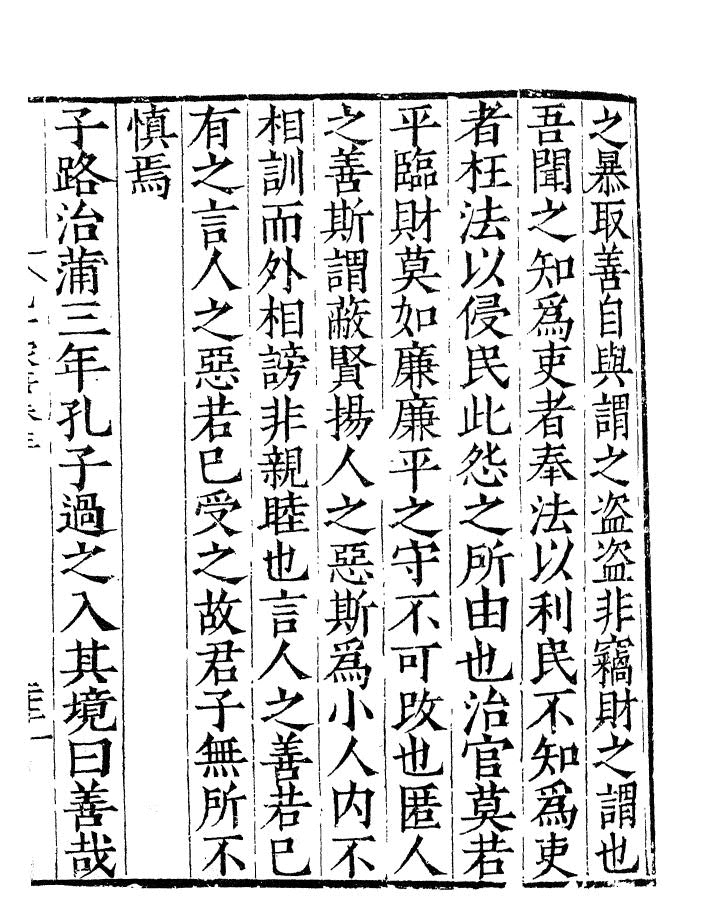 之暴取善自與謂之盗盗非竊財之謂也
吾聞之知爲吏者奉法以利民不知爲吏
者枉法以侵民此怨之所由也治官莫若
平臨財莫如廉廉平之守不可改也匿人
之善斯謂蔽賢揚人之惡斯爲小人内不
相訓而外相謗非親睦也言人之善若已
有之言人之惡若已受之故君子無所不
慎焉
子路治蒲三年孔子過之入其境曰善哉